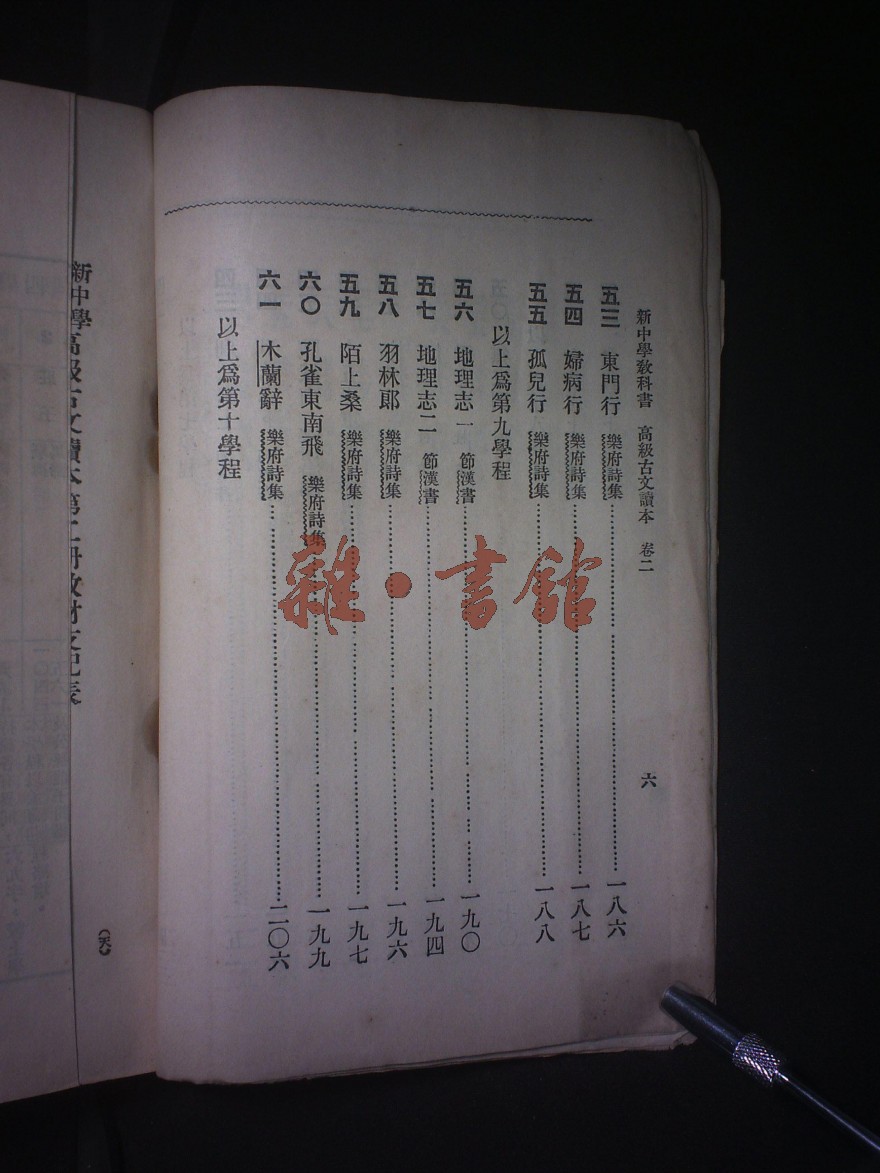 新中學教科書 高級古文讀本 卷二
六
五三 東門行 樂府詩集 一八六
五四 婦病行 樂府詩集 一八七
五五 孤兒行 樂府詩集 一八八
以上爲第九學程
五六 地理志一 節漢書 一九〇
五七 地理志二 節漢書 一九四
五八 羽林郎 樂府詩集 一九六
五九 陌上桑 樂府詩集 一九七
六〇 孔雀東南飛 樂府詩集 一九九
六一 木蘭辭 樂府詩集 二〇六
以上爲第十學程
雜·書館
新中學高級古文讀本第二册教材支配表